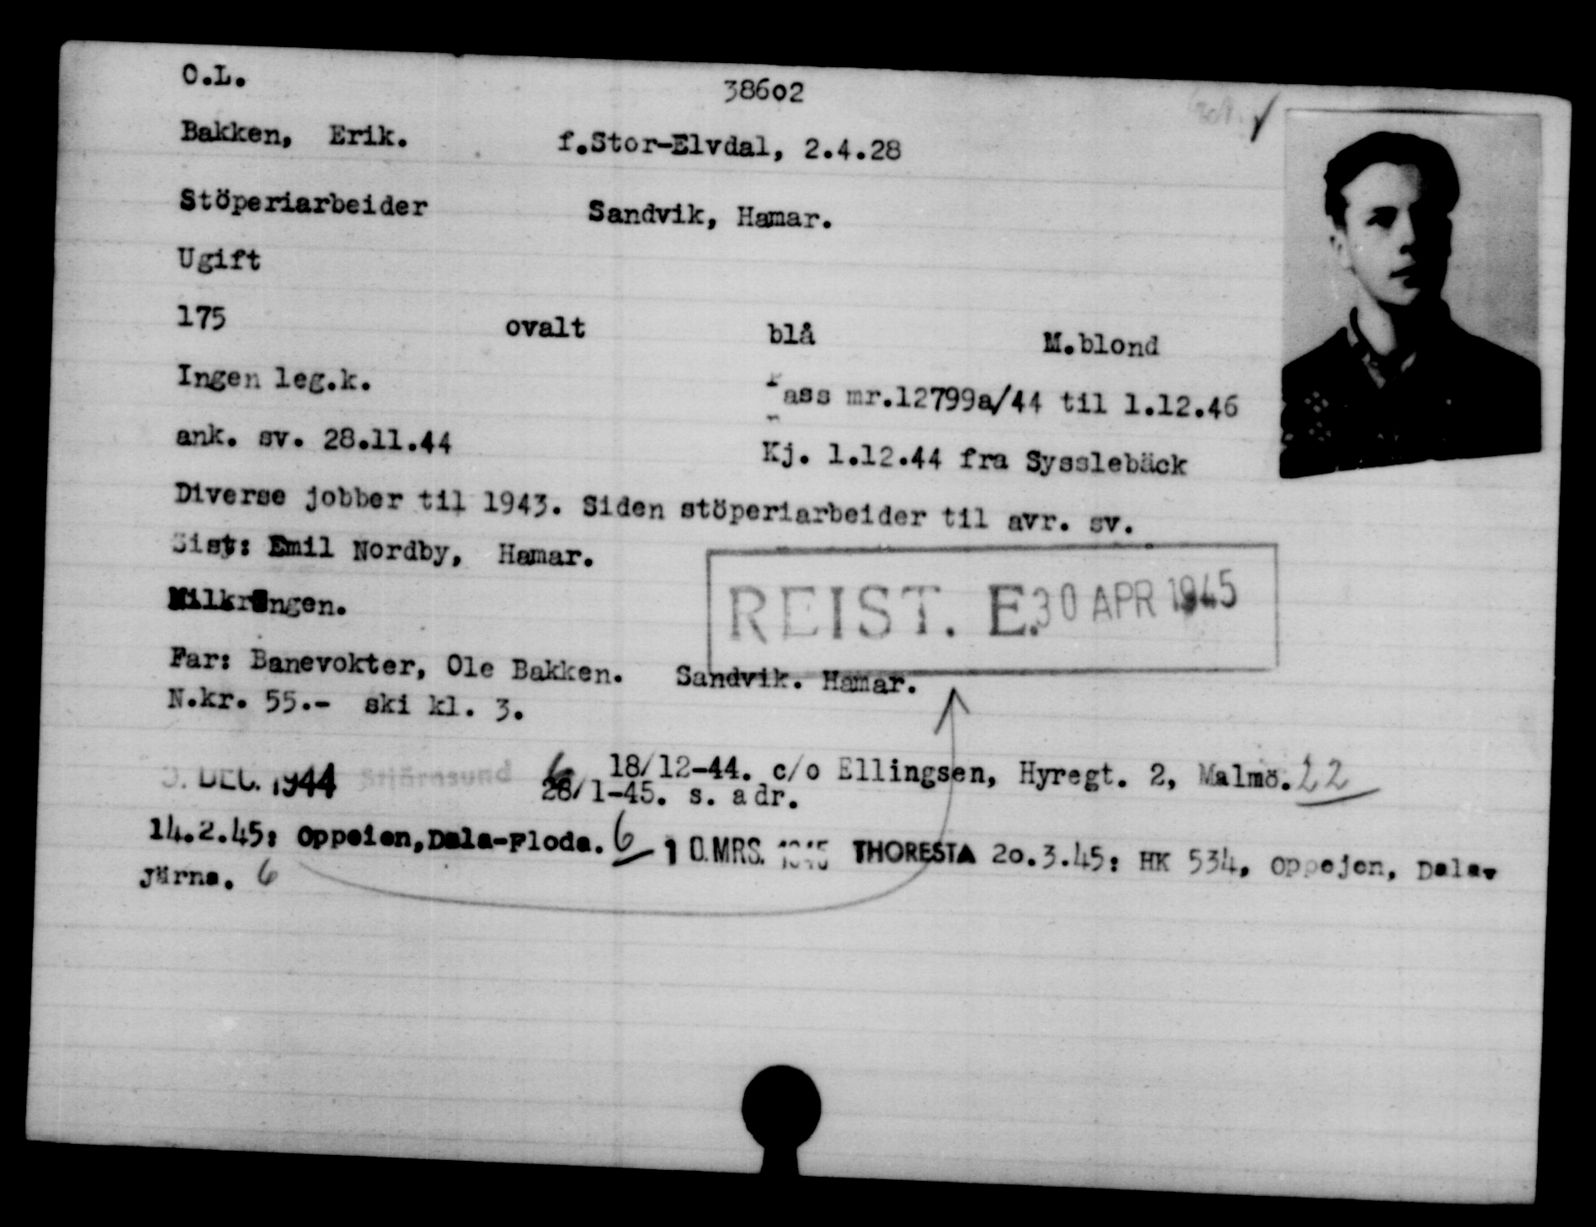 O.L.
38602
Bakken, Erik. f.Stor-Elvdal, 2.4.28
Stöperiarbeider Sandvik, Hamar.
Ugift
175 ovalt blå M.blond
Ingen leg.k. Pass nr.12799a/44 til 1.12.46
ank. sv. 28.11.44 Kj. 1.12.44 fra Sysslebäck
Diverse jobber til 1943. Siden stöperiarbeider til avr. sv.
Sist: Emil Nordby, Hamar.
Milkrongen.
REIST. E. 30 APR 1945
Far: Banevokter, Ole Bakken. Sandvik. Hamar.
N.kr. 55.- ski kl. 3.
DEC. 1944 Stjärnsund 6 18/12-44. c/o Ellingsen, Hyregt. 2, Malmö. 22
28/1-45. s. adr.
14.2.45: Oppeien,Dala-Floda. 6 10.MRS. 1945 THORESTA 20.3.45: HK 534, Oppejen, Dala-
Järna. 6